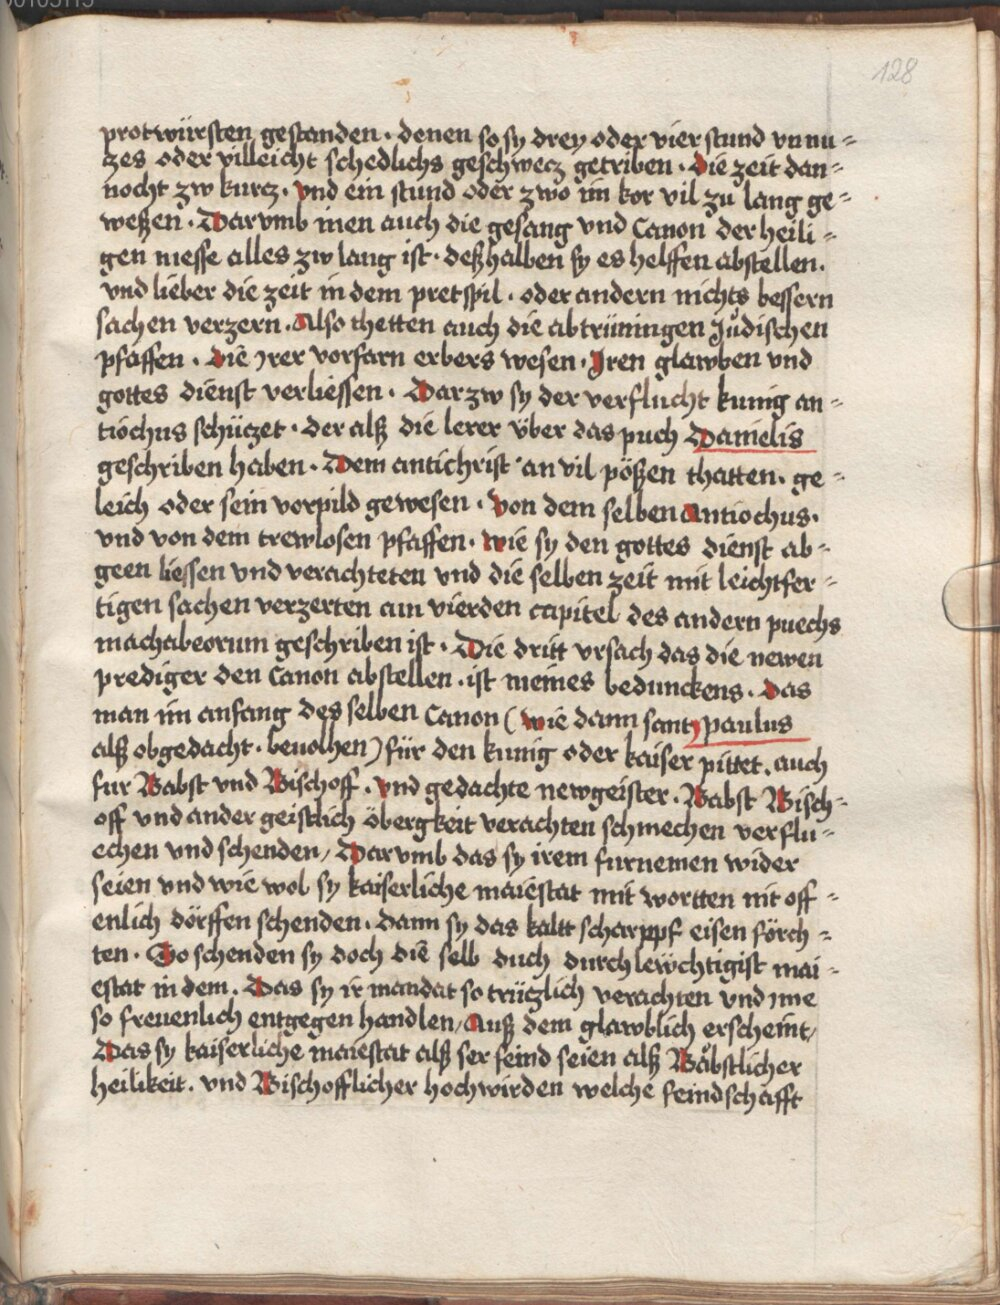 128
protwürsten gestanden · denen so sy drey oder vier stund vnnu-
zes oder villeicht schedlichs geschwecz getriben · Die zeit dan-
nocht zw kurcz · vnd ein stund oder zwo im kor vil zu lang ge-
weßen · Darvmb inen auch die gesang vnd Canon der heili-
gen messe alles zw lang ist · deßhalben sy es helffen abstellen.
vnd lieber die zeit in dem pretspil · oder andern nichts bessern
sachen verzern. Also thetten auch die abtrüningen Jůdischen
pfaffen · Die yrer vorfarn erbers wesen · Jren glawben vnd
gottes dienst verliessen · Darzw sy der verflucht kunig an-
tiochus schüczet · der alß die lerer über das puch Danielis
geschriben haben · Dem antichrist an vil pößen thatten · ge-
leich oder sein vorpild gewesen · Von dem selben Antiochus ·
vnd von dem trewlosen pfaffen · wie sy den gottes dienst ab-
geen liessen vnd verachteten vnd die selben zeit mit leichtfer-
tigen sachen verzerten am vierden capitel des andern puechs
machabeorum geschriben ist · Die dritt vrsach das die newen
prediger den Canon abstellen · ist meines bedunckens · Das
man im anfang des selben Canon (wie dann sant paulus
alß obgedacht · beuolhen) für den kunig oder kaiser pittet. auch
fur Babst vnd Bischoff · vnd gedachte newgeister · Babst Bisch-
off vnd ander geistlich öbergkeit verachten schmechen verflu-
echen vnd schenden / Darvmb das sy irem furnemen wider
seien vnd wie wol sy kaiserliche maiestat mit wortten nit off-
enlich dörffen schenden · dann sy das kaltt scharppf eisen förch-
ten · So schenden sy doch die selb duch durchlewchtigist mai-
estat in dem. Das sy ir mandat so trüczlich verachten vnd yme
so freuenlich entgegen handlen / Auß dem glawblich erscheint /
Das sy kaiserliche maiestat alß ser feind seien alß Båbstlicher
heilikeit. vnd Bischofflicher hochwirden welche feindschafft